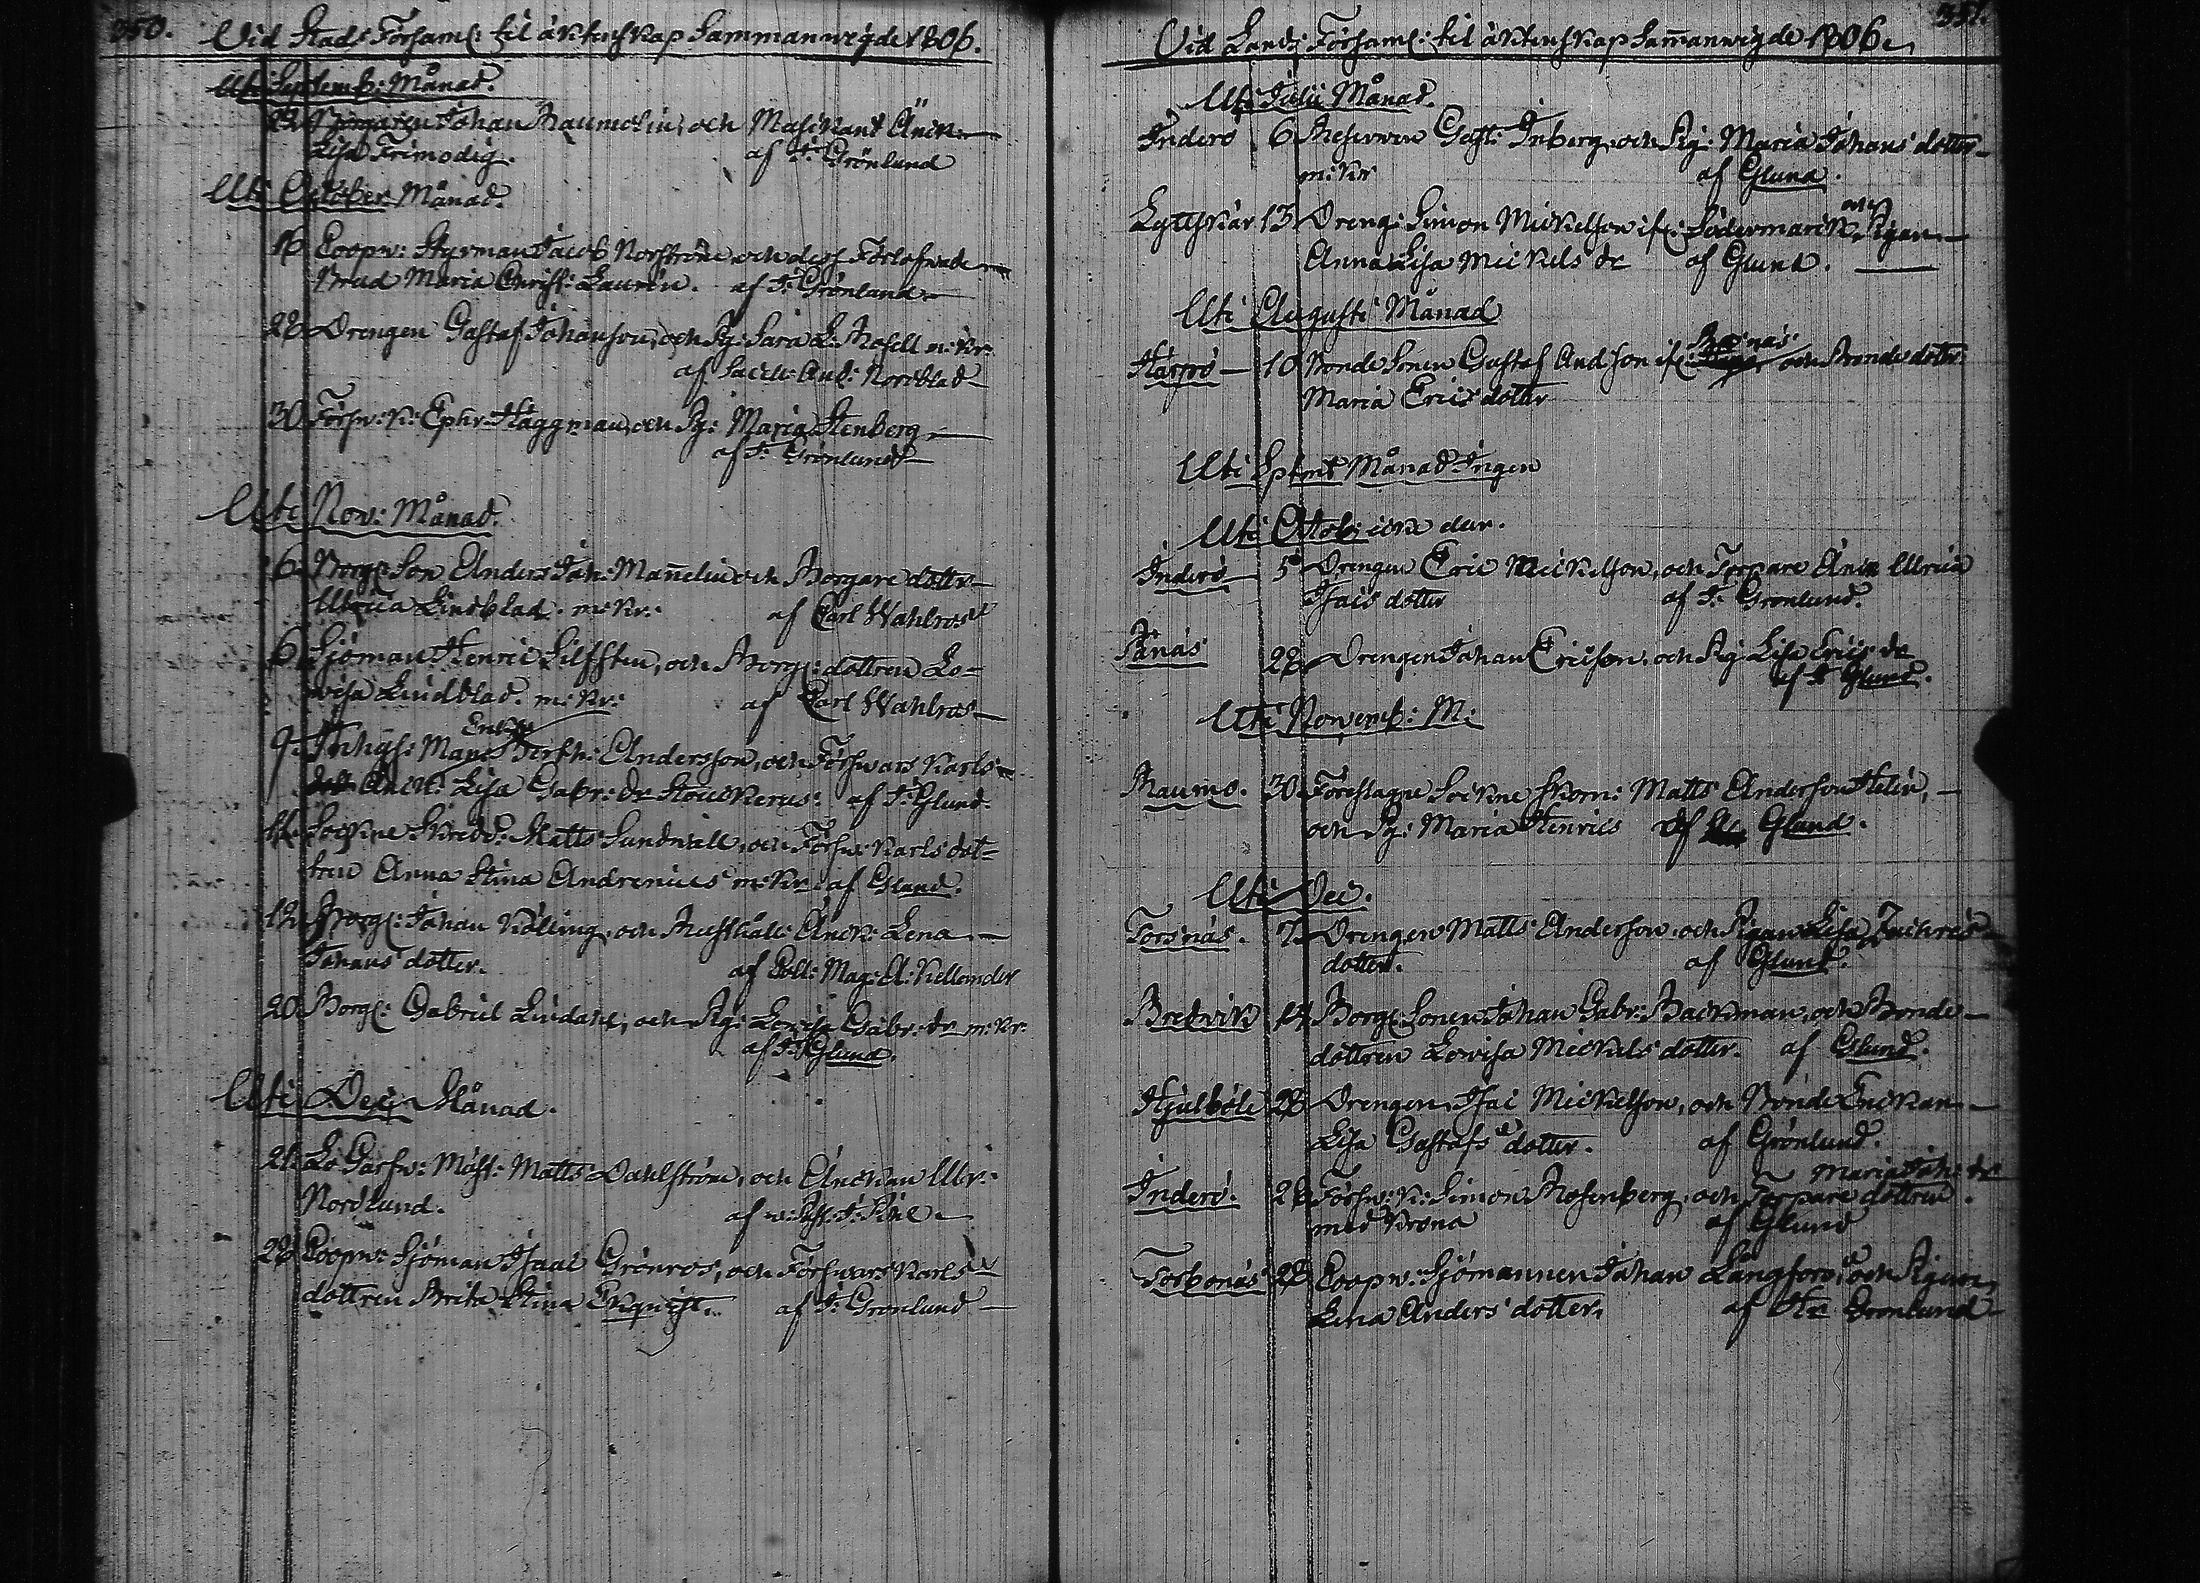 350.
Vid Stads Församl: til äktenskap Sammanwigde 1806.
Uti Septemb: Månad.
22 Borgaren Johan Raumolin, och Musikant Änck:
Lisa Frimodig. af J: Grönlund
Uti October Månad.
16 Coopv: Styrman Jacob Norström och dess Förlofwade
Brud Maria Christ: Laurén. af J: Grönlund
28 Drengen Gustaf Johanson, och Pig: Sara L: Rosell m: Kr:
af Nordblad
30 Försv: K: Ephr: Häggman, och Pig: Maria Stenberg
af J: Grönlund
Uti Nov: Månad.
6. Borg: Son Anders Joh: Mañelin och Borgare dotter
Ulrica Lindblad. m: Kr: af Carl Wahlros
6. Sjöman Henric Lilfsten, och Borg: dottren Lo-
wisa Lindblad. m: Kr: af Carl Wahlros
Enkl:
9. Inhys: Man Andersson, och Försvars Karls
Änck: Lisa Gabr: dr af J: Glund.
11. Sockne Skredd: Matts Sundwall, och Försv: Karls dot-
tren Anna Stina Andrenius m: Kr: af Glund.
12. Borg: Johan Kölling, och Änck: Lena
Johans dotter. af Coll: Mag: A: Kellander
20. Borg: Gabriel Lindahl, och Pig: Lowisa Gabr: dr m: Kr:
af J: Glund.
Uti Dec: Månad.
21. Matts Dahlström, och Änckan Ulr:
Nordlund. af
28 Coopv: Sjöman Isaac Grönros, och Försvars Karls
dottren Brita Stina Ekquist. af J: Grönlund
351.
Vid Lands Församl: til äktenskap Samanwigde 1806.
Uti Julii Månad.
Inderö 6 Gust: Inberg, och Pig: Maria Johans dotter
m: Kr af Glund.
13 Dreng: Simon Mickelson if: Södermarck och Pigan
Anna Lisa Mickels dr af Glund.
Uti Augusti Månad
Härpö 10 Bonde Sonen Gustaf Andson if: och Bonde dotter
Maria Erics dotter
Uti Sptmb Månad Ingen
Uti Octob:
Inderö 5 Drengen Eric Mickelson, och Torpare Änk Ulrica
Isacs dotter af J: Grönlund.
Pånäs 28 Drengen Johan Ericson, och Pig Lisa Erics dr
af J Glund.
Uti Novemb: M:
Raumo. 30. Föreslagne Sockne Skom: Matts Anderson Helin,
och Pig: Maria Henrics af Glund.
Uti Dec.
Torsnäs. 7. Drengen Matts Anderson, och Pigan Lisa Zachris
dotter. af Glund.
Bredvik 14 Borg: Sonen Johan Gabr: Backman, och Bonde
dottren Lowisa Mickels dotter. af Glund.
Hjulböle 28 Drengen Isac Mickelson, och Bonde Enckan
Lisa Gustafs dotter. af Grönlund.
Maria Joh: dr
Inderö. 28 Försv: K: Simon Rosenberg, och Torpare dottren.
med Krona af Glund
Torbonäs 28 Coopv: Sjömannen Johan Långfors, och Pigan
Lena Anders dotter. af Hr Grönlund